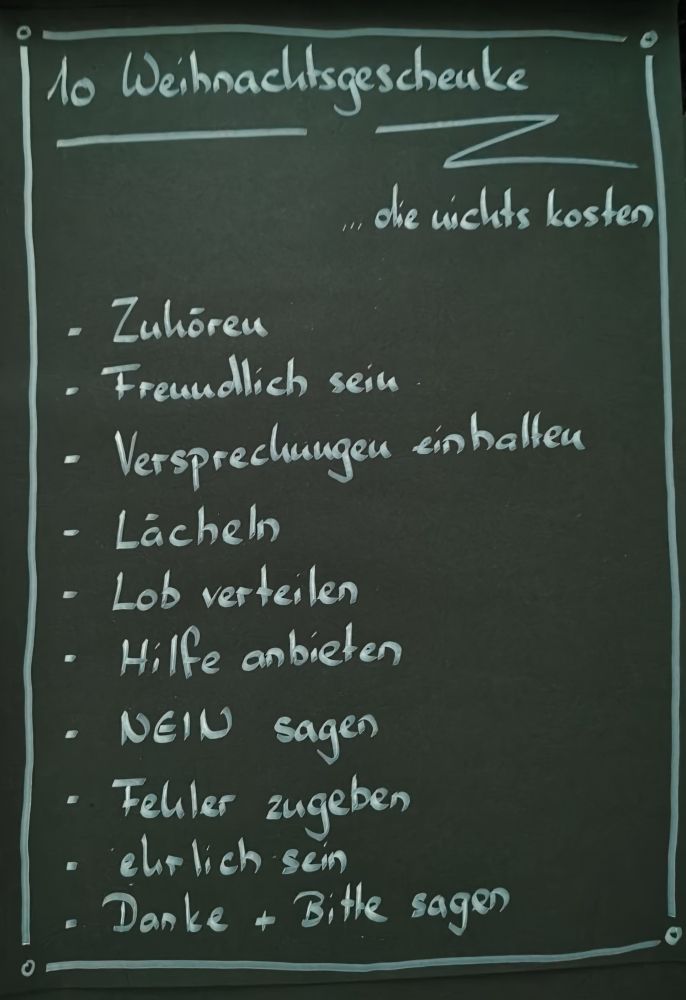 10 Weihnachtsgeschenke
... die nichts kosten
- Zuhören
- Freundlich sein
- Versprechungen einhalten
- Lächeln
- Lob verteilen
- Hilfe anbieten
- NEIN sagen
- Fehler zugeben
- ehrlich sein
- Danke + Bitte sagen